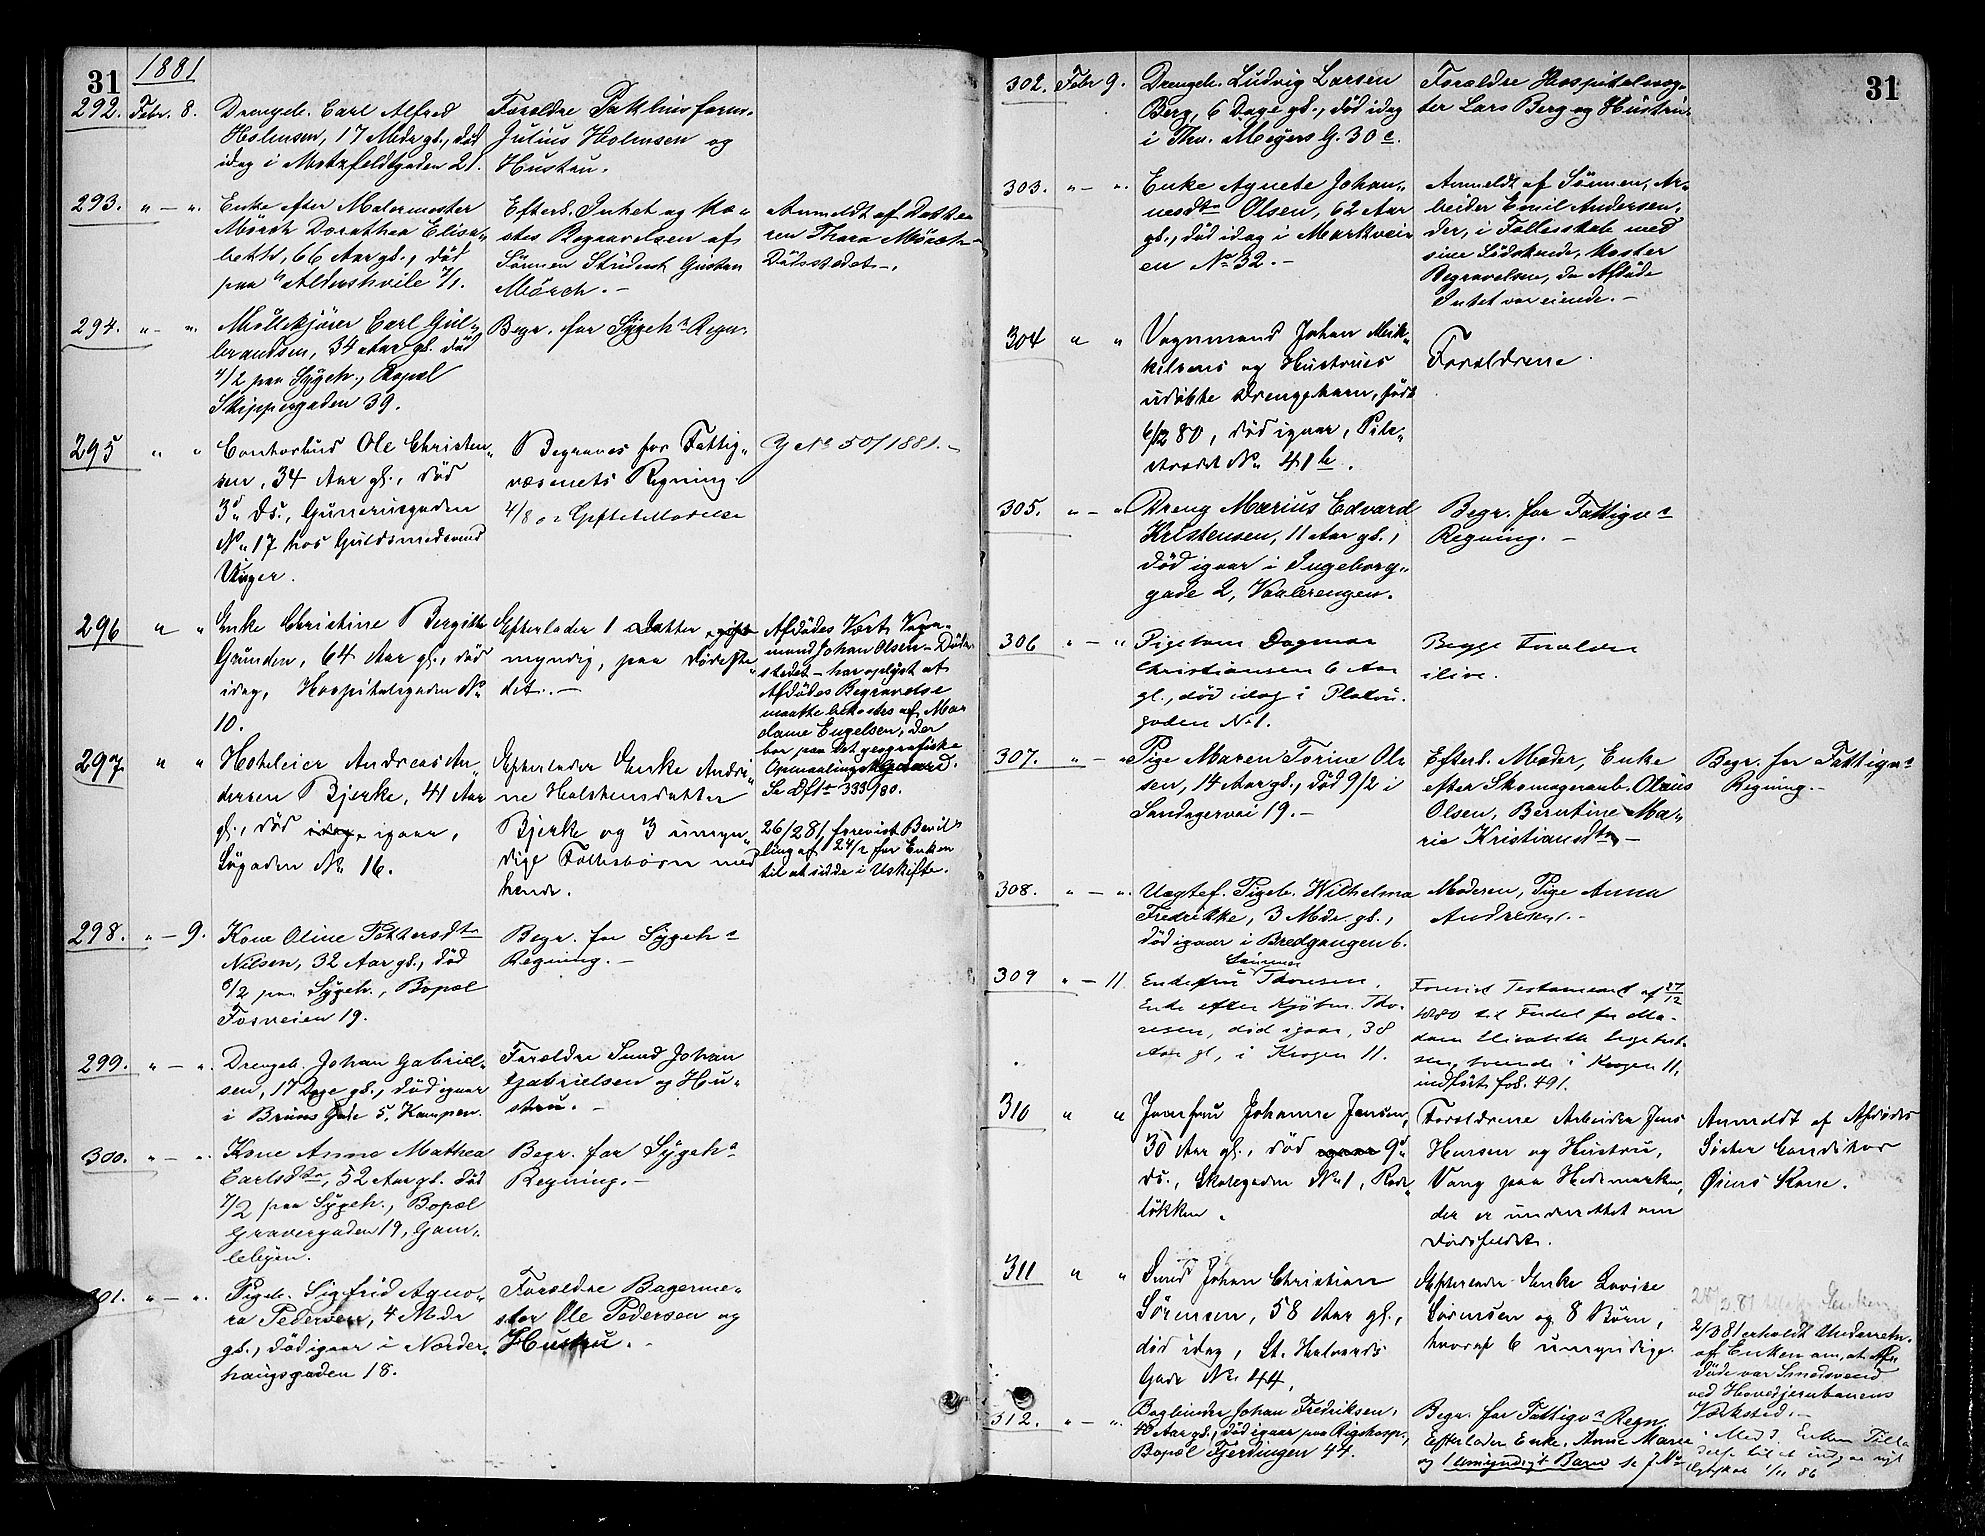 31
1881
292. Febr. 8.
Drengeb. Carl Alfred
Holmsen, 17 Mdr gl., död
idag i Motzfeldtgaden 21.
Forældre Pakhusform.
Julius Holmsen og
Hustru.
293. " — ".
Enke efter Malermester
Mörch Dorathea Elisa„
beth, 66 Aar gl., död
paa "Aldershvile 7/1.
Efterl. Intet og ko„
stes Begravelsen af
Sönnen Student Gustav
Mörch. —
Anmeldt af Datte
ren Thora Mörch —
Dödsstedet —.
294. " — ".
Möllekjörer Carl Gul„
brandsen, 34 Aar gl. död
4/2 paa Sygeh., Bopæl
Skippergaden 39.
Begr. for Sygeh.s Regn.
295 " "
Contorbud Ole Christen„
sen, 34 Aar gl., död
3d Ds., Gunerusgaden
No 17 hos Guldsmedsvend
Unger.
Begraves for Fattig„
væsenets Regning.
J No 50/1881. —
296 " "
Enke Christine Bergitte
Grunden, 64 Aar gl., död
idag, Hospitalsgaden No
10.
Efterlader 1 Datter, gift
myndig, paa Dödsste„
det. —
Afdödes Vært, Vogn„
mand Johan Olsen — Döds„
stedet — har oplyst at
Afdödes Begravelse
maatte bekostes af Ma
dame Engelsen, der
bor paa Det geografiske
Opmaalings Gaard.
Se Dfto 333/80.
297. " "
Hoteleier Andreas An„
dersen Bjerke, 41 Aar
gl., död idag, igaar,
Sögaden No 16.
Efterlader Enke Andri„
ne Halstensdatter
Bjerke og 3 umyn„
dige Fællesbörn med
hende.
26/2 81, forevist Bevil„
ling af 24/2 for Enken
til at sidde i Uskifte.
298. " — 9.
Kone Oline Pettersdtr
Nilsen, 32 Aar gl., död
8/2 paa Sygeh., Bopæl
Fosveien 19.
Begr. for Sygeh.s
Regning. —
299. " — ".
Drengeb. Johan Gabriel„
sen, 17 Dage gl., död igaar
i Bruns Gade 5, Kampen.
Forældre Smed Johan
Gabrielsen og Hu„
stru. —
300. " — ".
Kone Anne Mathea
Carlsdtr, 52 Aar gl. död
7/2 paa Sygeh., Bopæl
Gravergaden 19, Gam„
lebyen.
Begr. for Sygeh.s
Regning. —
301. " — ".
Pigeb. Sigfrid Agno„
ra Pedersen, 4 Mdr
gl., död igaar i Norder„
haugsgaden 18.
Forældre Bagerme„
ster Ole Pedersen og
Hustru. —
31
302. Febr 9.
Drengeb. Ludvig Larsen
Berg, 6 Dage gl., död idag
i Thv. Meyers G. 30 c.
Forældre Hospitalsvog„
ter Lars Berg og Hustru.
303. " — ".
Enke Agnete Johan„
nesdtr Olsen, 62 Aar
gl., död idag i Markvei
en No 32. —
Anmeldt af Sönnen, Ar„
beider Emil Andersen,
der, i Fællesskab med
sine Södskende, koster
Begravelsen, da Afdöde
Intet var eiende. —
304 " "
Vognmand Johan Mik„
kelsens og Hustrues
udöbte Drengebarn, födt
6/12 80, död igaar, Pile„
strædet No 41 b.
Forældrene.
305. " — "
Dreng Marius Edvard
Kristensen, 11 Aar gl.,
död igaar i Ingeborg„
gade 2, Vaalerengen.
Begr. for Fattigv.s
Regning. —
306 " — "
Pigebarn Dagmar
Christiansen 6 Aar
gl., död idag i Platou„
gaden No 1.
Begge Forældre
ilive.
307. " — "
Pige Maren Torine Ol„
sen, 14 Aar gl., död 9/2 i
Sandagervei 19. —
Efterl. Moder, Enke
efter Skomagerarb. Olaus
Olsen, Berntine Ma„
rie Kristiansdtr —
Begr. for Fattigv.s
Regning. —
308. " — ".
Uægtef. Pigeb. Wilhelma
Fredrikke, 3 Mdr. gl.,
död igaar i Bredgangen 6.
Moderen, Pige Anna
Andresen. —
309 " — 11.
Enkefru Thoresen,
Enke efter Kjöbm. Tho„
resen, död igaar, 38
Aar gl., i Krogen 11.
Forevist Testament af 27/12
1880 til Fordel for Ma„
dam Elisabeth Engebret„
sen, boende i Krogen 11,
indfört fol. 491.
310 " "
Jomfru Johanne Jensen,
30 Aar gl., död igaar 9d
ds., Skolegaden No 1, Rode„
lökken.
Forældrene Arbeider Jens
Hansen og Hustru,
Vang paa Hedemarken,
der er underrettet om
Dödsfaldet.
Anmeldt af Afdödes
Söster Conditor
Öiens Kone.
311 " "
Smed Johan Christian
Sörensen, 58 Aar gl.,
död idag, St. Halvards
Gade No 44.
Efterlader Enke Lovise
Sörensen og 8 Börn,
hvoraf 6 umyndige.
2/3 81 erholdt Underretn.
af Enken om, at Af„
döde var Smedsvend
ved Hovedjernbanens
Værksted. —
312. " — ".
Bogbinder Johan Fredriksen,
40 Aar gl., död igaar paa Rigshosp.,
Bopæl Fjerdingen 44.
Begr. for Fattigv.s Regn.
Efterlader Enke, Anne Marie
og 1 umyndigt Barn se J No
1/11 86